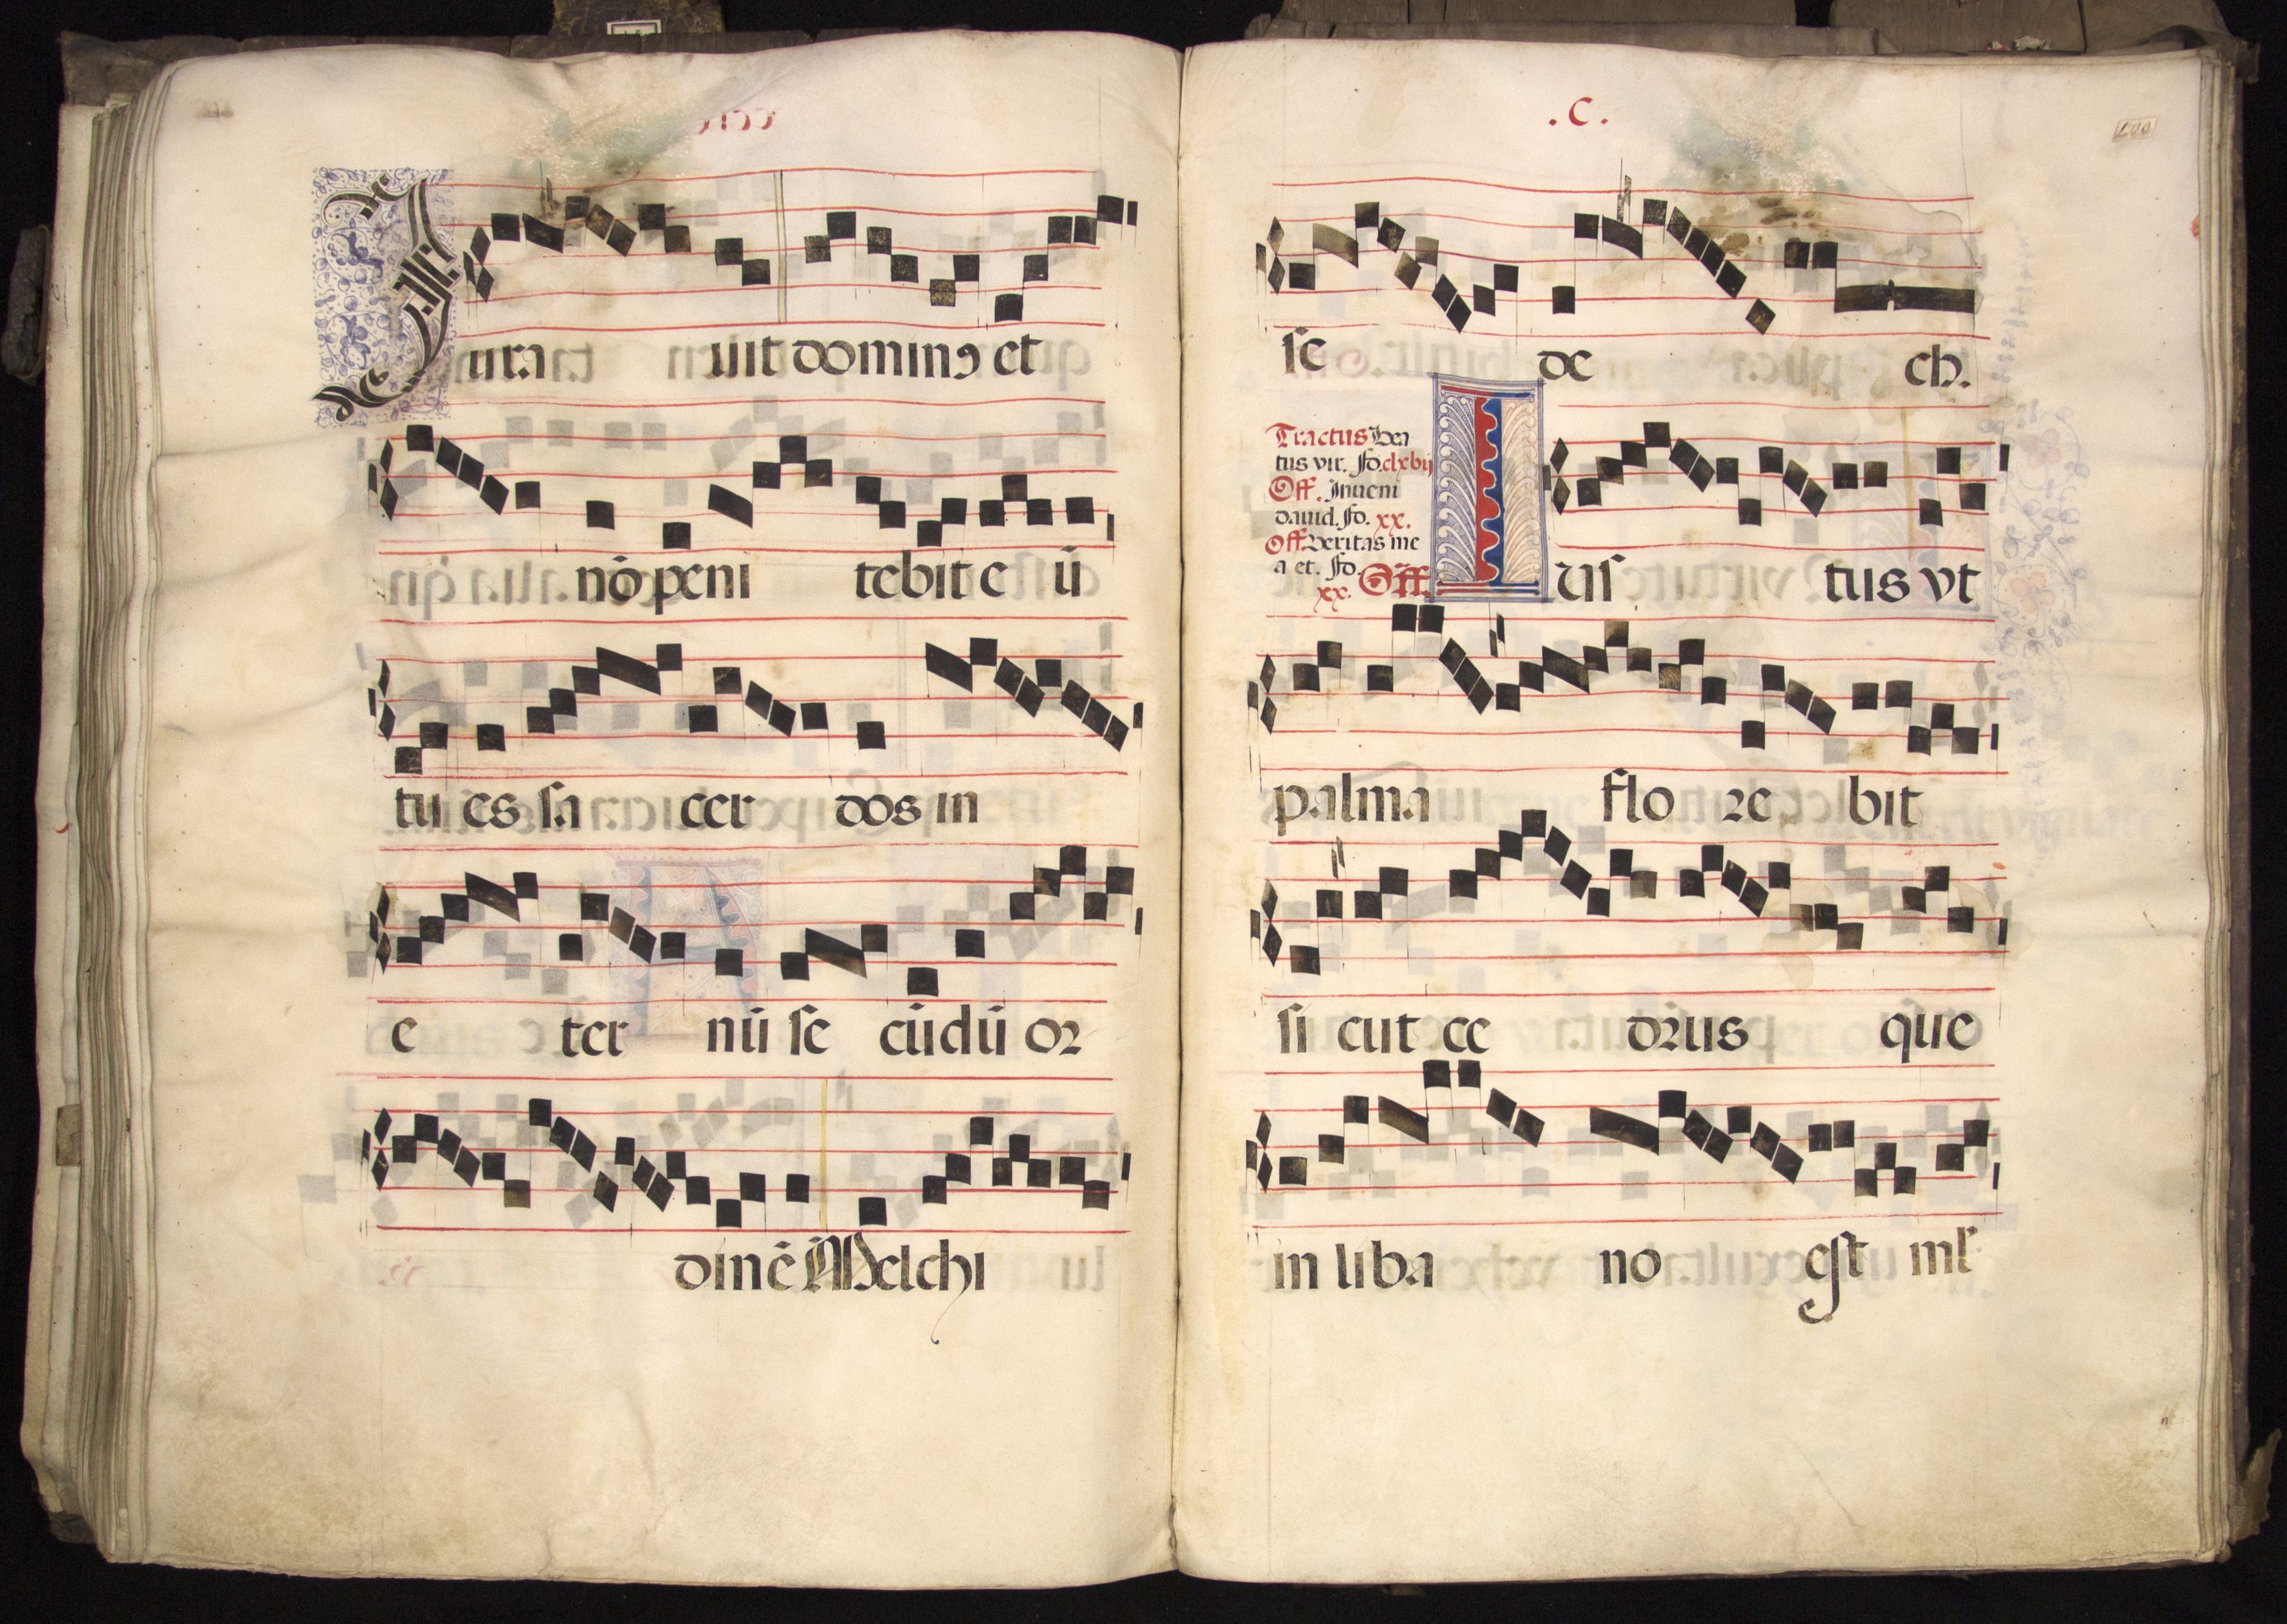 Iura uit dominꝯ et
nō peni tebit e ū
tu es sa cer dos in
e ter nū se cūdū or
dinē Melchi
.c.
100
se de ch.
Tractus Bea
tus vir. fo. clxvij
Off. Inueni
dauid. fo. xx.
Off. Veritas me
a et. fo.
xx. Off.
Ius tus vt
palma flo re bit
si cut ce drus que
in liba no est ml̄